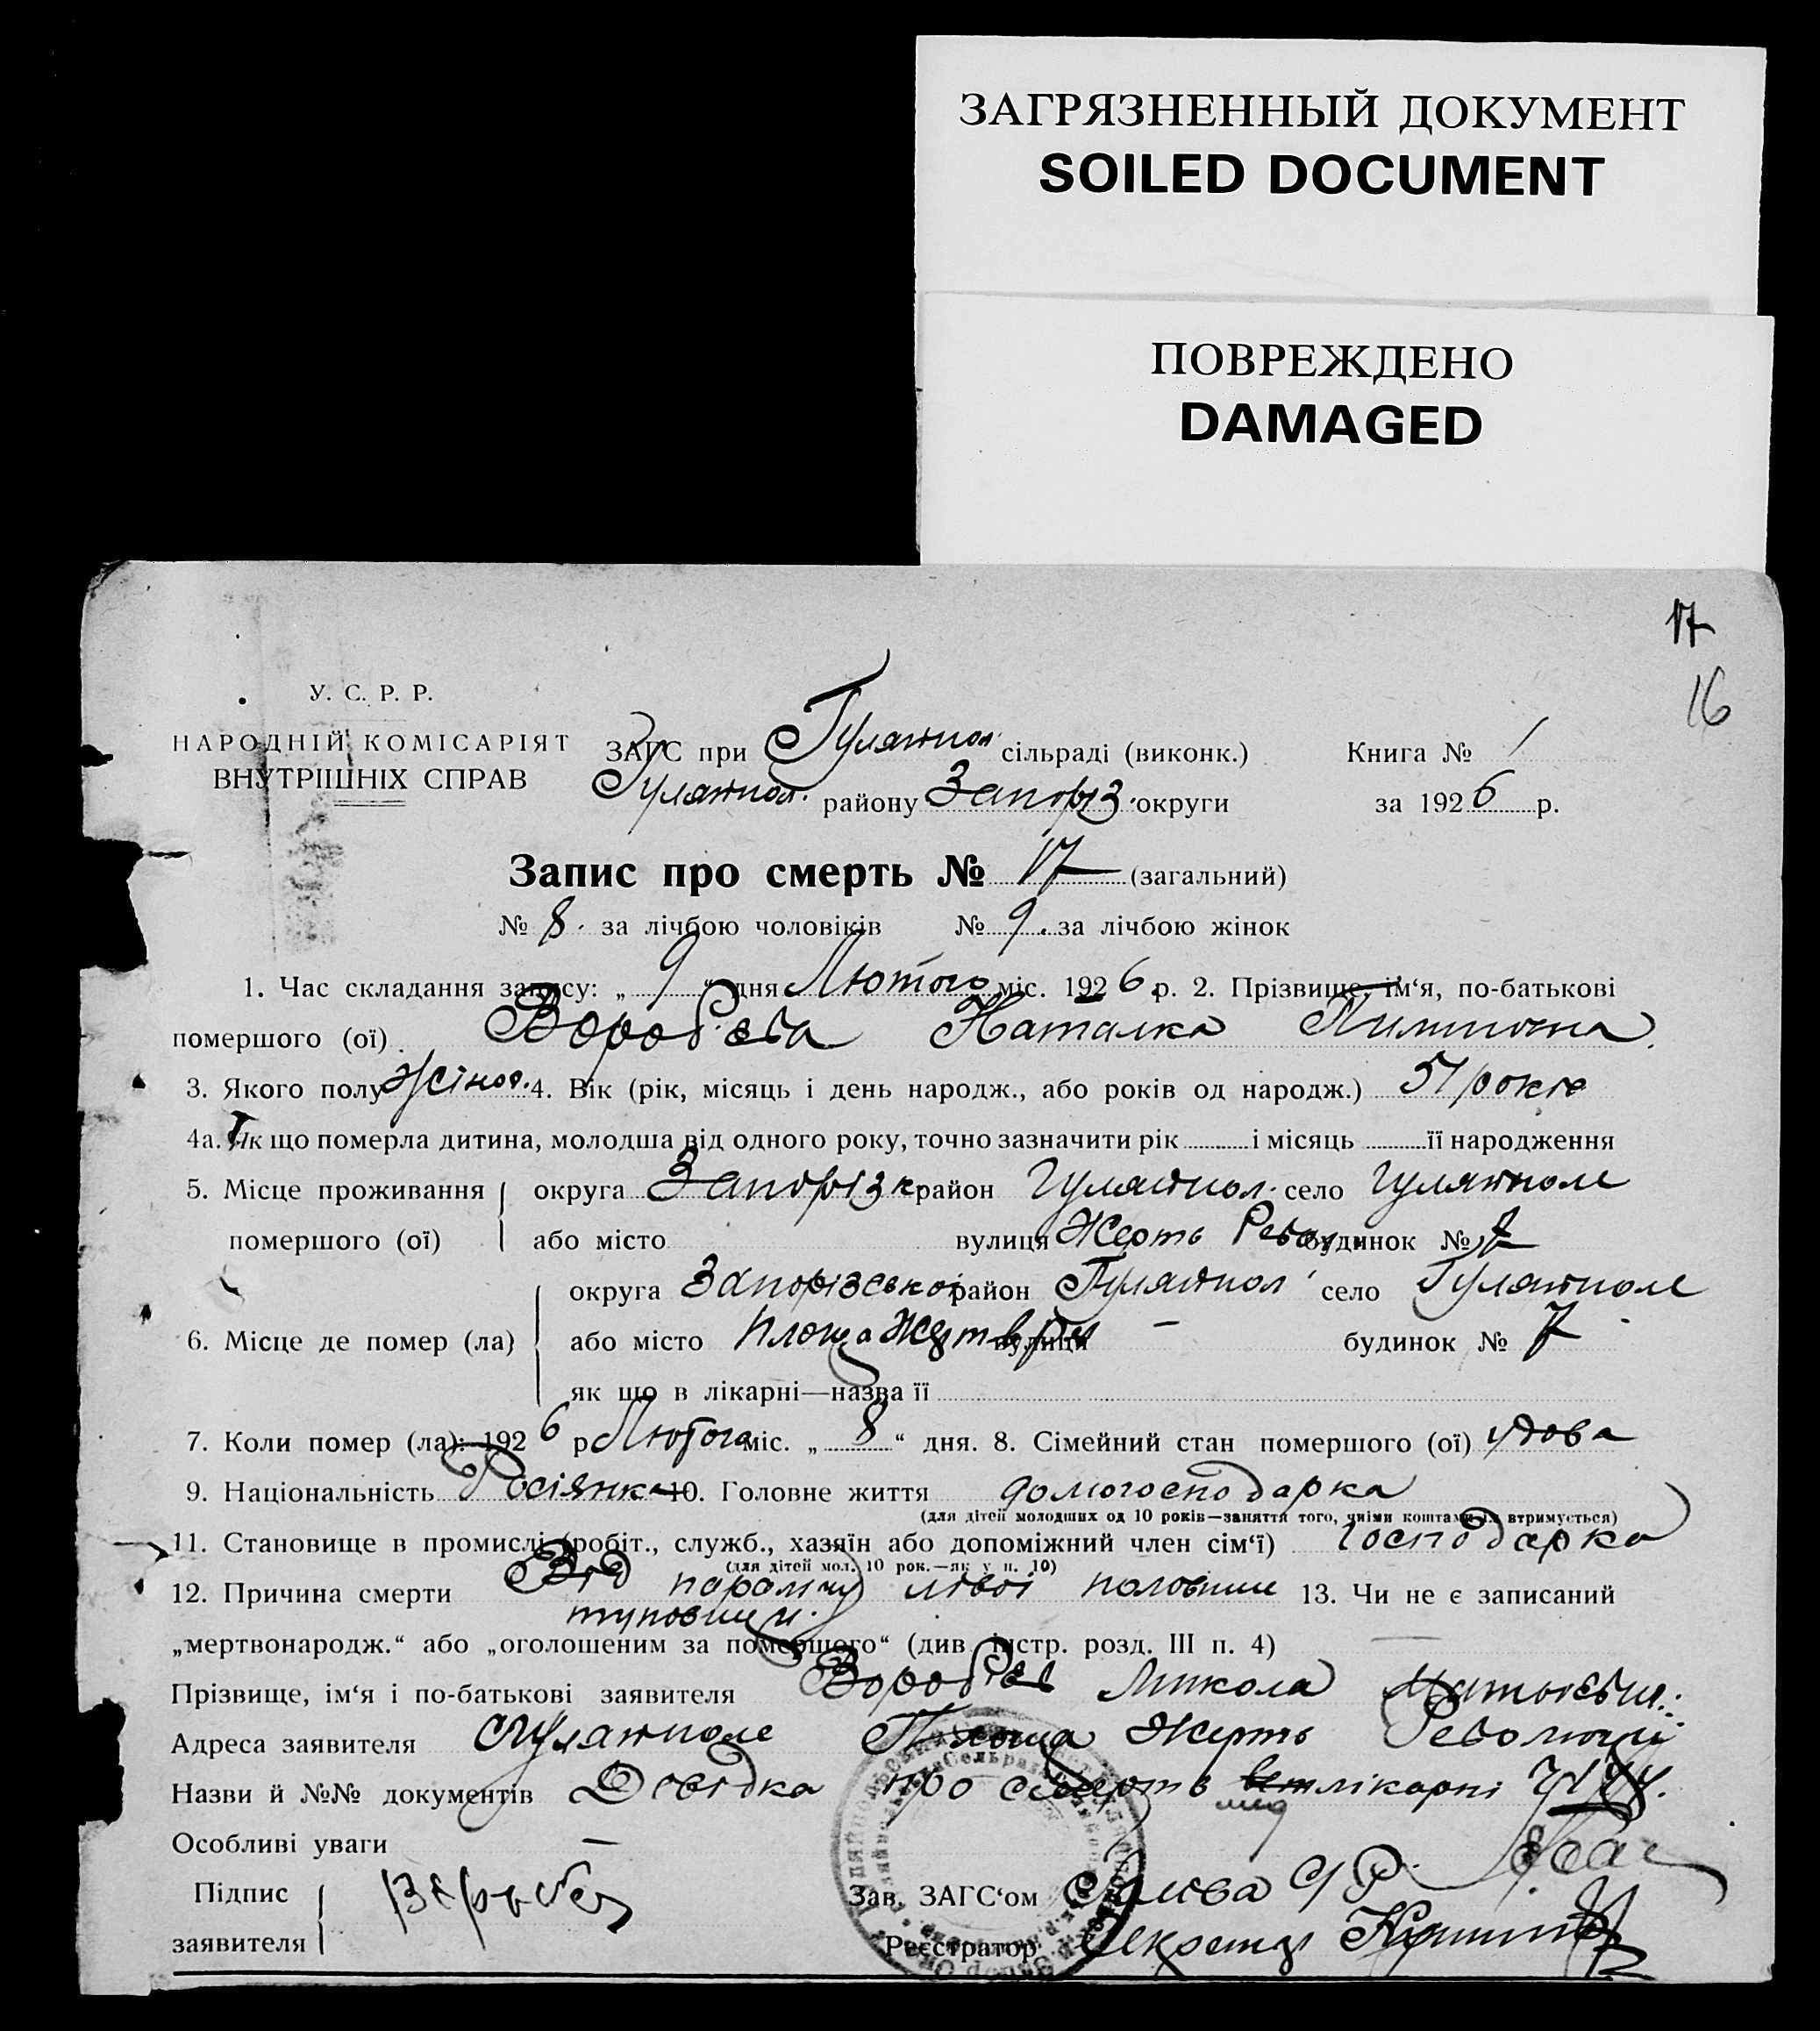 ЗАГРЯЗНЕННЫЙ ДОКУМЕНТ
SOILED DOCUMENT
ПОВРЕЖДЕНО
DAMAGED
17
16
У. С. Р. Р.
НАРОДНІЙ КОМІСАРІЯТ
ВНУТРІШНІХ СПРАВ
ЗАГС при Гуляйпол. сільраді (виконк.) Книга № 1
Гуляйпол. району Запоріз. округи за 1926 р.
Запис про смерть № 17 (загальний)
№ 8. за лічбою чоловіків № 9. за лічбою жінок
1. Час складання запису: „ 9 “ дня Лютого міс. 1926 р. 2. Прізвище, ім‘я, по-батькові
помершого (ої) Вороб'єва Наталка
3. Якого полу жіноч. 4. Вік (рік, місяць і день народж., або років од народж.) 51 років
4а. Як що померла дитина, молодша від одного року, точно зазначити рік і місяць її народження
5. Місце проживання округа Запорізк район Гуляйпол. село Гуляйполе
помершого (ої) або місто вулиця Жерть Револ. будинок № 7
округа Запорізської район Гуляйпол село Гуляйполе
6. Місце де помер (ла) або місто площа Жертв Рев вулиця — будинок № 7
як що в лікарні—назва її
7. Коли помер (ла): 1926 р. Лютого міс. „ 8 “ дня. 8. Сімейний стан помершого (ої) удова
9. Національність Росіянка 10. Головне життя домогосподарка
(для дітей молодших од 10 років—заняття того, чиїми коштами їх втримується)
11. Становище в промислі (робіт., служб., хазяїн або допоміжний член сім‘ї) господарка
(для дітей мол. 10 рок.—як у п. 10)
12. Причина смерти Від параличу лівої половини 13. Чи не є записаний
туловищ.
„мертвонародж.“ або „оголошеним за помершого“ (див. інстр. розд. III п. 4) —
Прізвище, ім‘я і по-батькові заявителя Вороб'єв Микола
Адреса заявителя Гуляйполе Площа Жерть Революції
Назви й №№ документів Довідка про смерть лікарні
Особливі уваги —
Підпис
заявителя
Зав. ЗАГС‘ом Голова С/Р.
Реєстратор Секретар